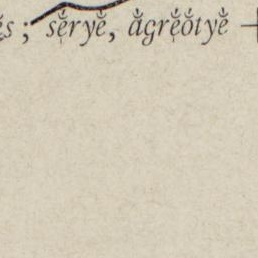 s ; sĕ́ryĕ́, ắgrĕ́ŏ́tyĕ́